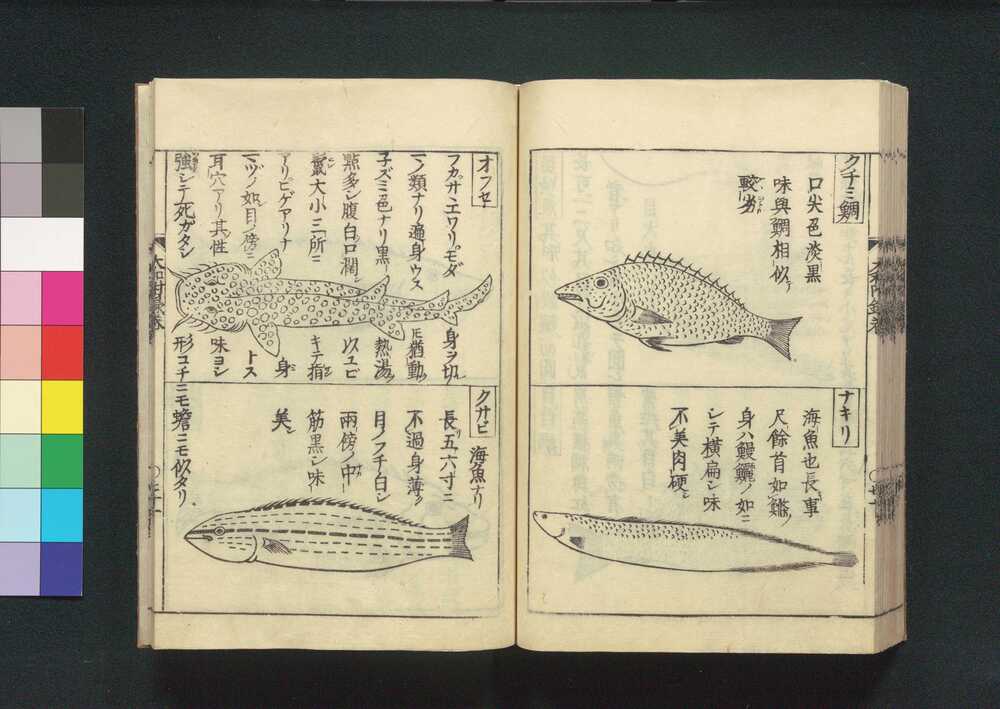 クチミ鯛
口尖色淡黒
味與鯛相似
較劣
ナキリ
海魚也長事
尺餘首如鱵
身ハ鰻鱺ノ如ニ
シテ横扁シ味
不美肉硬シ
オフセ
フカサエワリモダ
マノ類ナリ遍身ウス
子ズミ色ナリ黒
點多シ腹白口濶シ
鬣大小三所ニ
アリヒゲアリナ
マヅノ如目ノ傍ニ
耳穴アリ其性
強シテ死ガタシ
身ヲ切
𪜈猶動ク
熱湯ヲ
以ユビ
キテ指
身
トス
味ヨシ
形コチニモ蟾ニモ似タリ
クサビ
海魚ナリ
長五六寸ニ
不過身薄ク
目ノフチ白シ
兩傍ノ中ニ
筋黒シ味
美シ